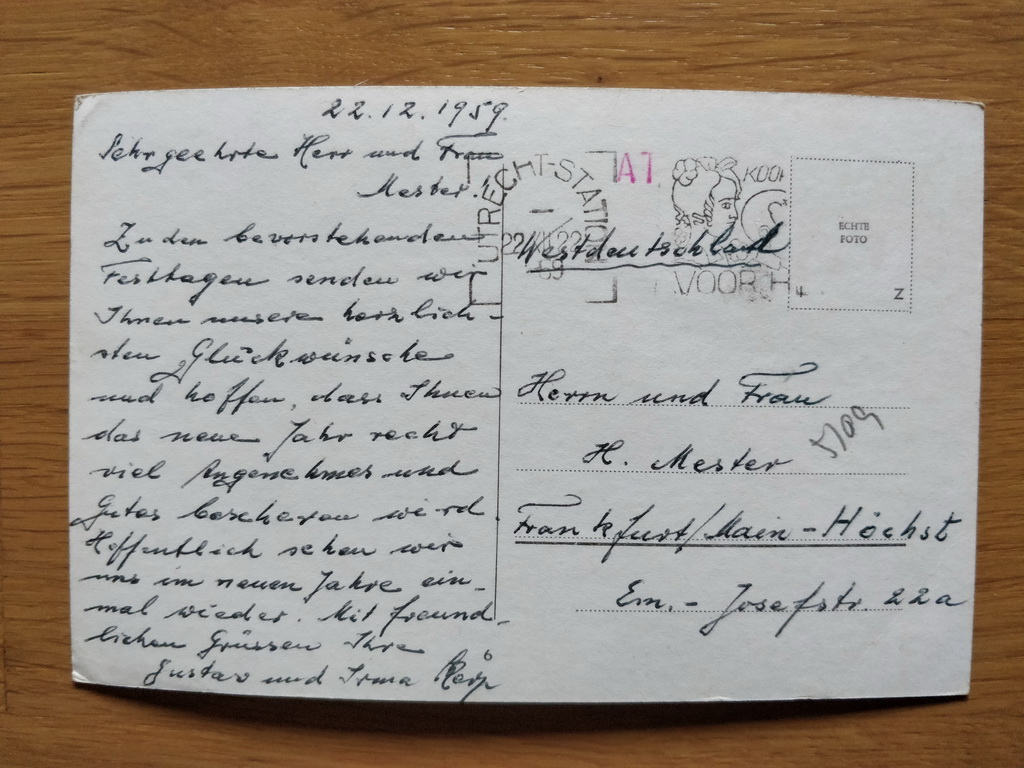 22.12.1959.
Sehr geehrte Herr und Frau
Mester!
Zu den bevorstehenden
Festtagen senden wir
Ihnen unsere herzlich-
sten Glückwünsche
und hoffen, dass Ihnen
das neue Jahr recht
viel Angenehmes und
Gutes bescheren wird.
Hoffentlich sehen wir
uns im neuen Jahre ein-
mal wieder. Mit freund-
lichen Grüssen Ihre
Gustav und Irma
UTRECHT-STATION
AT
VOOR H
ECHTE
FOTO
4
Z
Westdeutschland
Herrn und Frau
H. Mester
Frankfurt/Main-Höchst
Em.- Josefstr. 22a